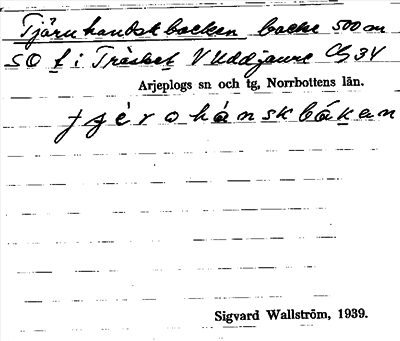 Tjäruhandskbacken backe 500 m
SO t i Träsket V Uddjaure Cg 34
Arjeplogs sn och tg, Norrbottens län.
tjérohánskbákan
Sigvard Wallström, 1939.